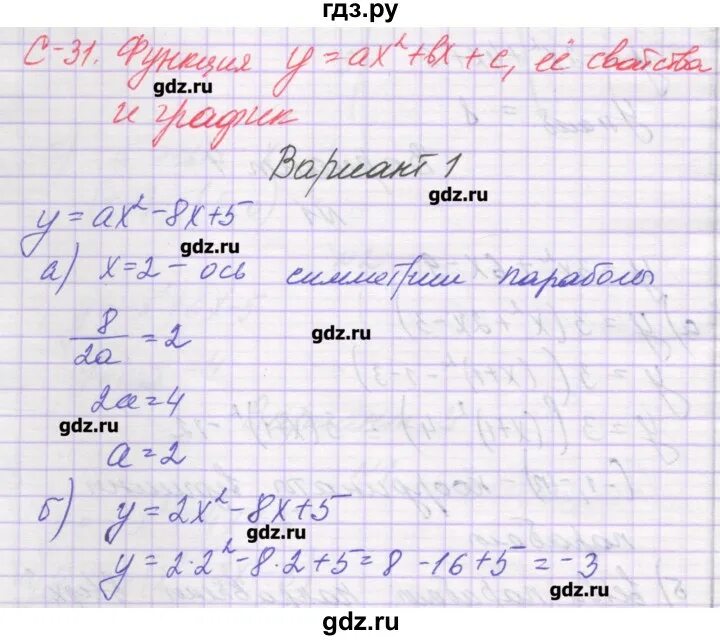 гдз.ру
С-31. Функция y=ax²+bx+c, её свойства
gdz.ru
и график
Вариант 1
gdz.ru
y=ax²-8x+5
gdz.ru
а) x=2 - ось симметрии параболы
8/2a = 2
gdz.ru
2a=4
gdz.ru
a=2
б) y=2x²-8x+5
gdz.ru
y=2·2²-8·2+5=8-16+5=-3
gdz.ru
gdz.ru